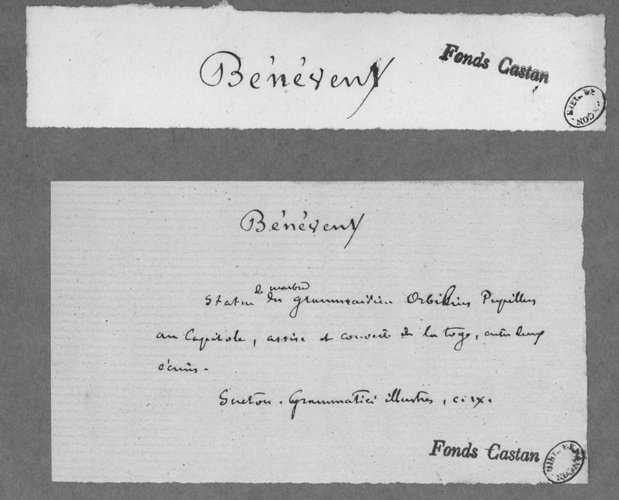 Bénévent
Fonds Castan
Bénévent
de marbre
Statue du grammairien Orbilius Pupillus
au Capitole, assise et couverte de la toge, entre deux
écrins.
Sueton. Grammatici illustres, c. ix.
Fonds Castan